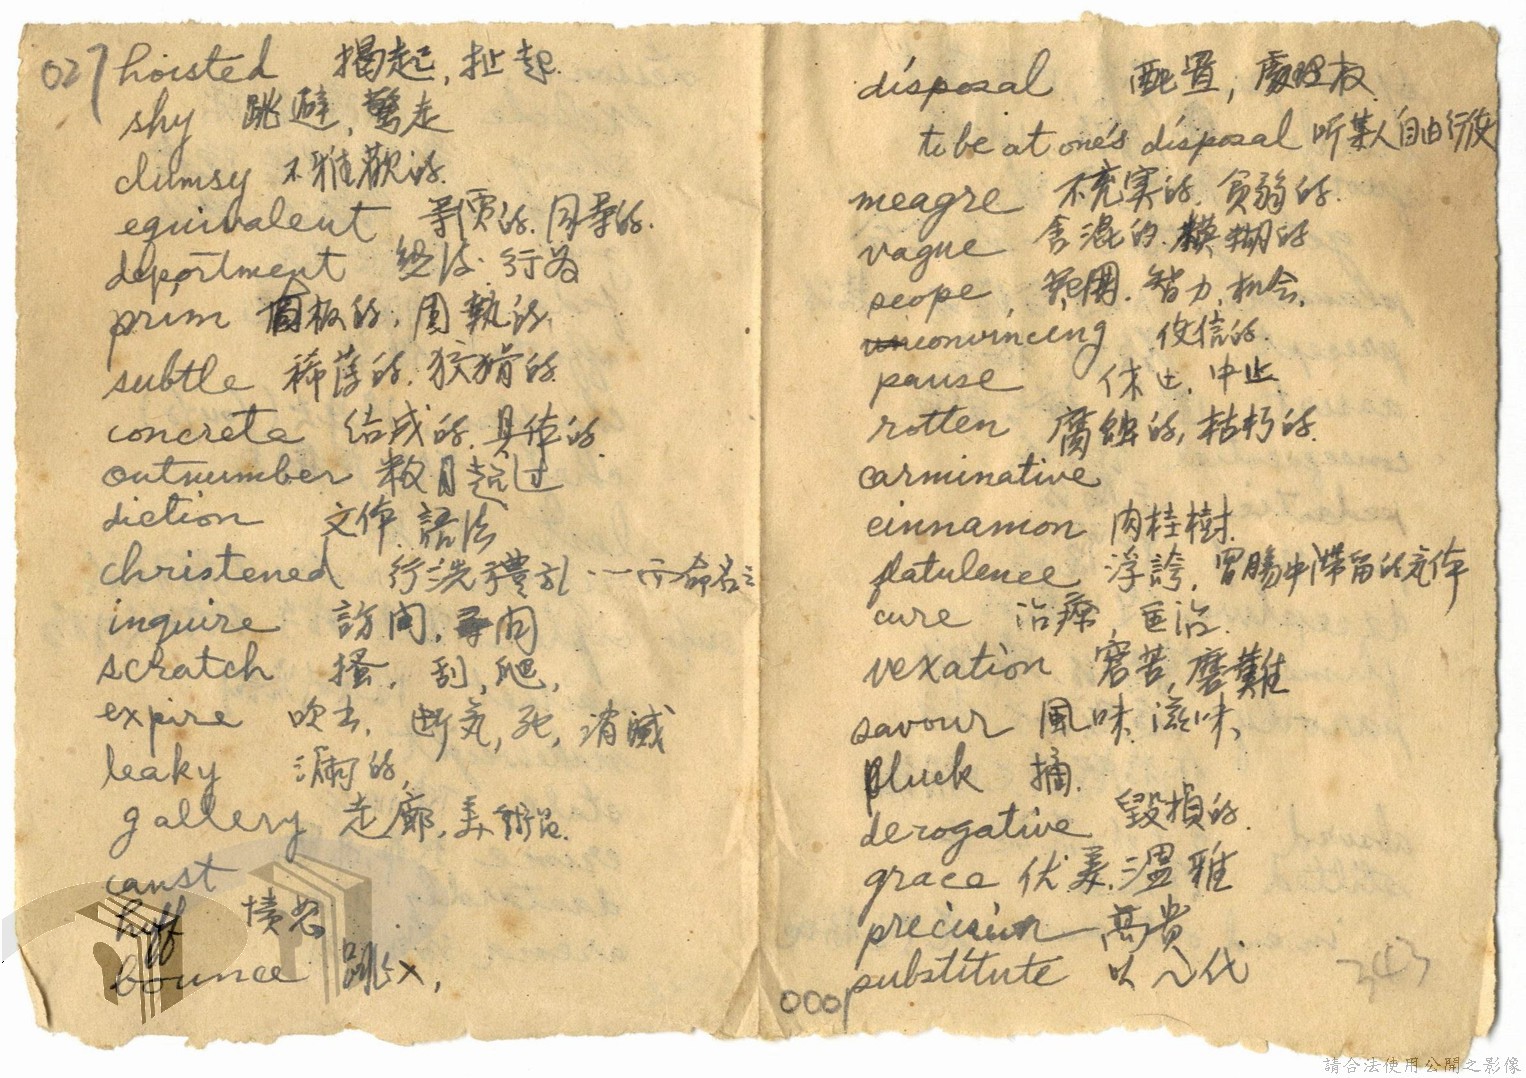 027
hoisted 揭起, 扯起.
shy 跳避, 驚走
clumsy 不雅觀的.
equivalent 等價的. 同等的.
deportment 行為
prim 固執的.
subtle 稀薄的. 狡猾的.
concrete 结成的. 具体的.
outnumber 数目超过
diction 文体. 語法
christened 行洗禮 命名
inquire 訪问, 尋问
scratch 搔, 刮, 爬,
expire 吹出, 断氣, 死, 消滅
leaky 漏的,
gallery 走廊, 美術館.
canst
huff 憤怒
bounce 跳
disposal 配置, 處理权
to be at one's disposal 听某人自由行使
meagre 不充实的. 貧弱的.
vague 含混的. 模糊的
scope 範囲. 智力, 机会,
convincing 信的.
pause 休止, 中止
rotten 腐蝕的, 枯朽的.
carminative
cinnamon 肉桂樹.
flatulence 浮誇, 胃腸中滯留的气体
cure 治療, 医治.
vexation 窘苦, 磨難
savour 風味, 滋味,
pluck 摘.
derogative 毀損的.
grace 优美, 温雅
precision 高貴
substitute 以～代
0001
343
請合法使用公開之影像